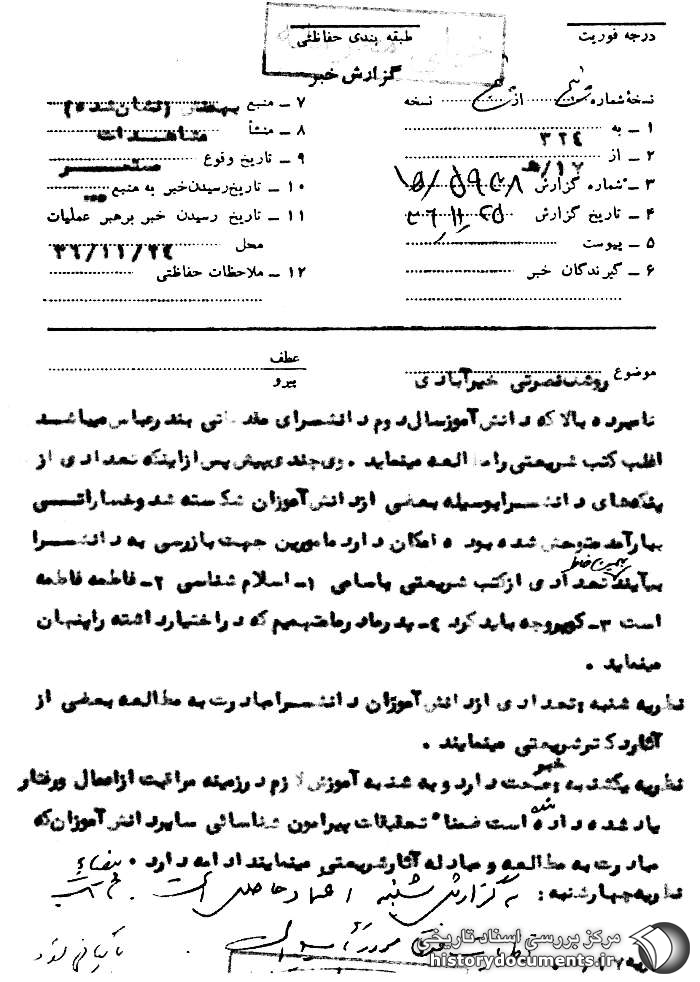 درجه فوریت
طبقه بندی حفاظتی
گزارش خبر
نسخهٔ شماره پنج از پنج نسخه
۱ ـ به ۳۲۴
۲ ـ از ۱۷/هـ
۳ ـ شماره گزارش
۴ ـ تاریخ گزارش ۳۶/۱۱/۲۵
۵ ـ پیوست
۶ ـ گیرندگان خبر
۷ ـ منبع بهمن (نشان شده)
۸ ـ منشأ مشاهدات
۹ ـ تاریخ وقوع مستمر
۱۰ ـ تاریخ رسیدن خبر به منبع
۱۱ ـ تاریخ رسیدن خبر برهبر عملیات
محل ۳۶/۱۱/۲۴
۱۲ ـ ملاحظات حفاظتی
موضوع روشند نصرتی خیرآبادی
عطف
پیرو
نامبرده بالا که دانش آموز سال دوم دانشسرای مقدماتی بندرعباس میباشد
اغلب کتب شریعتی را مطالعه مینماید . وی چندی پیش پس از اینکه تعدادی از
پنکه‌های دانشسرا بوسیله بعضی از دانش آموزان شکسته شد و خساراتی
ببار آمد متوحش شده بود ه امکان دارد مامورین جهت بازرسی به دانشسرا
بیایند بهمین خاطر تعدادی از کتب شریعتی باسامی ۱ـ اسلام شناسی ۲ـ فاطمه فاطمه
است ۳ـ کویر و چه باید کرد ۴ـ پدر مادر ما متهمیم که در اختیار داشته را پنهان
مینماید .
نظریه شنبه : تعدادی از دانش آموزان دانشسرا مبادرت به مطالعه بعضی از
آثار دکتر شریعتی مینمایند .
نظریه یکشنبه : خبر صحت دارد و به شنبه آموزش لازم در زمینه مراقبت از اعمال و رفتار
یاد شده داده شده است ضمنا" تحقیقات پیرامون شناسائی سایر دانش آموزان که
مبادرت به مطالعه و مبادله آثار شریعتی مینمایند ادامه دارد .
نظریه چهارشنبه : به گزارش شنبه اعتماد حاصل است .
مرکز بررسی اسناد تاریخی
historydocuments.ir